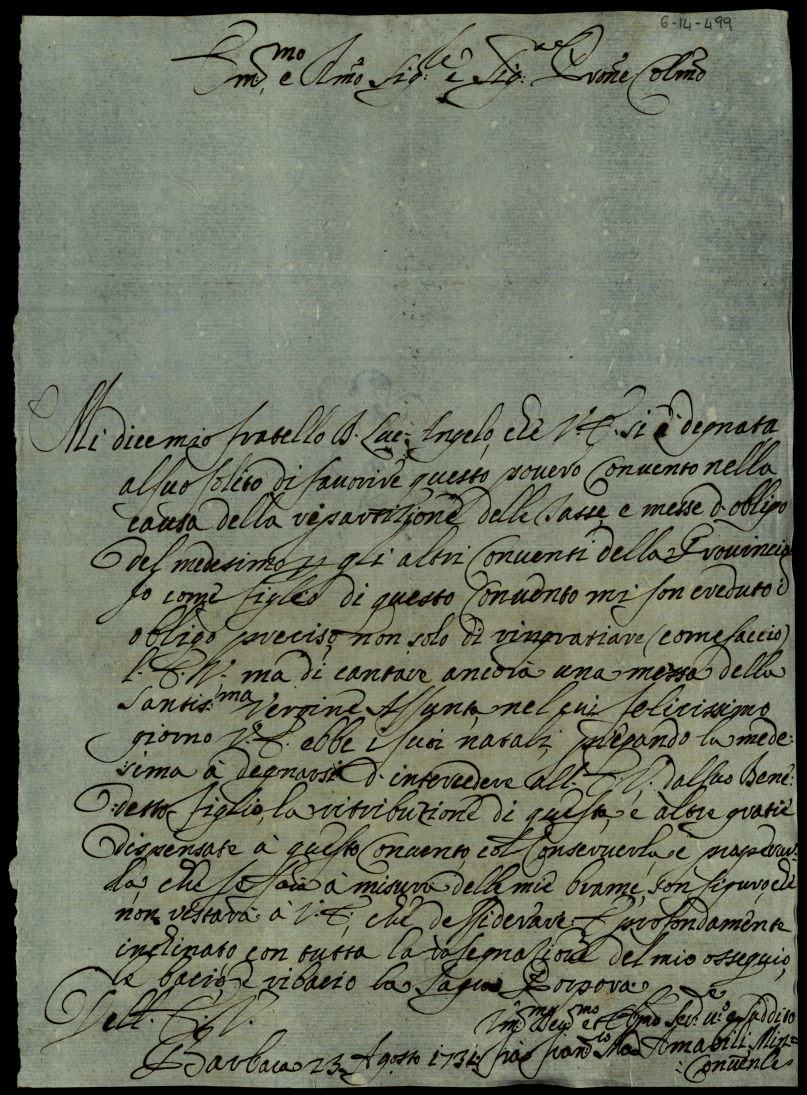 6-14-499
Em.mo e Rmo Sig.re e Sig.re Prone Colmo
Mi dice mio fratello B. Luc. Angelo, che V. E. si è degnata
al suo solito di favorire questo povero Convento nella
causa della repartizione delle Tasse e messe d'obligo
del medesimo p gli altri Conventi della Provincia
Io come figlio di questo Convento mi son creduto i
obligo preciso, non solo di ringratiare (come faccio)
l' E. V. ma di cantare ancora una messa della
Santis:ma Vergine Assunta, nel cui felicissimo
giorno V. E. ebbe i suoi natali, pregando la mede:
sima à degnarsi d'intercedere all' E. V. dal suo Bene:
:detto figlio, la ritribuzione di questa, e altre gratie
dispensate à questo Convento, col conserverla, e
la, che se sarà à misura delle mie brame, son siguro, che
non restarà à V. E. che dessiderare. E profondamente
inclinato con tutta la rasegnazione del mio ossequio,
le bacio, e ribacio la Sagra Porpora
Dell. E. V.
Barbara 23 Agosto 1731
Um.mo Dev.mo et Obmo Ser.re v.o e Suddito
fra Fran.co Ma Amabili Min=
:Conven.le